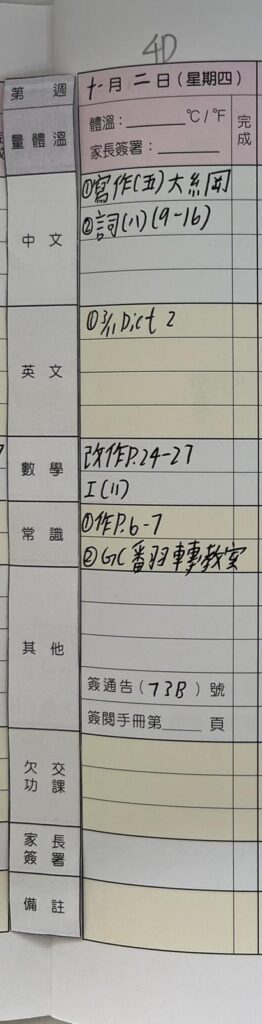 4D
第 週 十一月 二 日 (星期四)
量體溫 體溫：______°C / °F 完成
家長簽署：______
中文 ①寫作(五)大綱
②詞(八)(9-16)
英文 ①3/11 Dict 2
數學 改作P.24-27
工(11)
常識 ①作P.6-7
②GC番羽轉教室
其他
簽通告(73B)號
簽閱手冊第____頁
欠交功課
家長簽署
備註